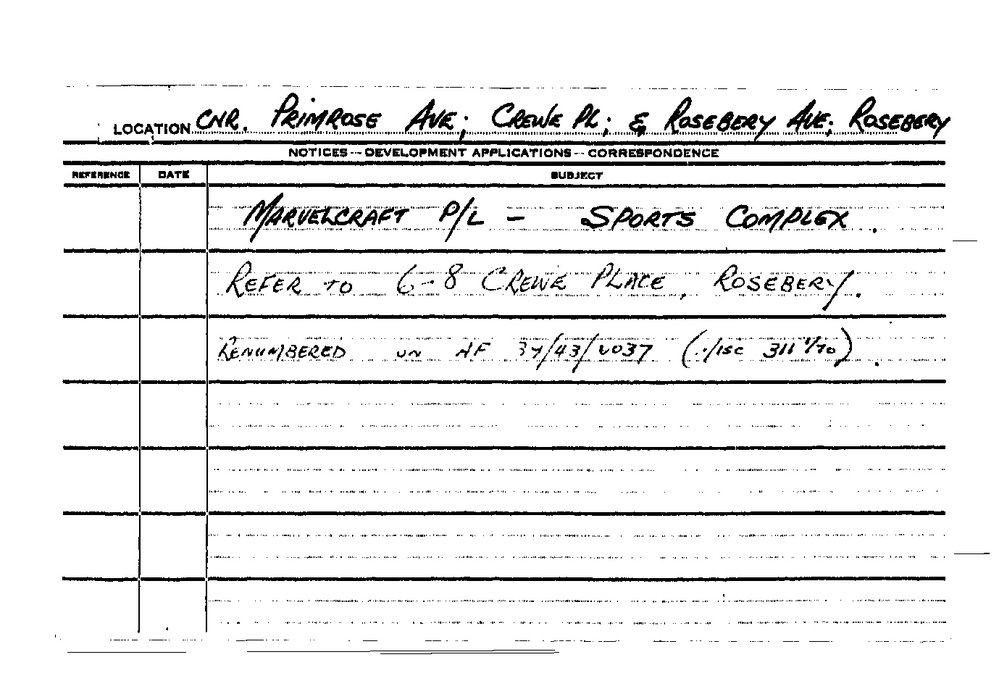 LOCATION CNR. PRIMROSE AVE; CREWE PL; & ROSEBERY AVE; ROSEBERY
NOTICES - DEVELOPMENT APPLICATIONS - CORRESPONDENCE
REFERENCE DATE SUBJECT
MARVELCRAFT P/L - SPORTS COMPLEX.
REFER TO 6-8 CREWE PLACE, ROSEBERY.
RENUMBERED ON AF